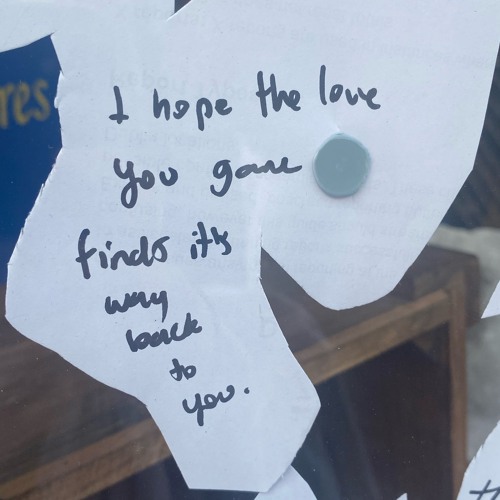 res
I hope the love
you gave
finds it's
way
back
to
you.